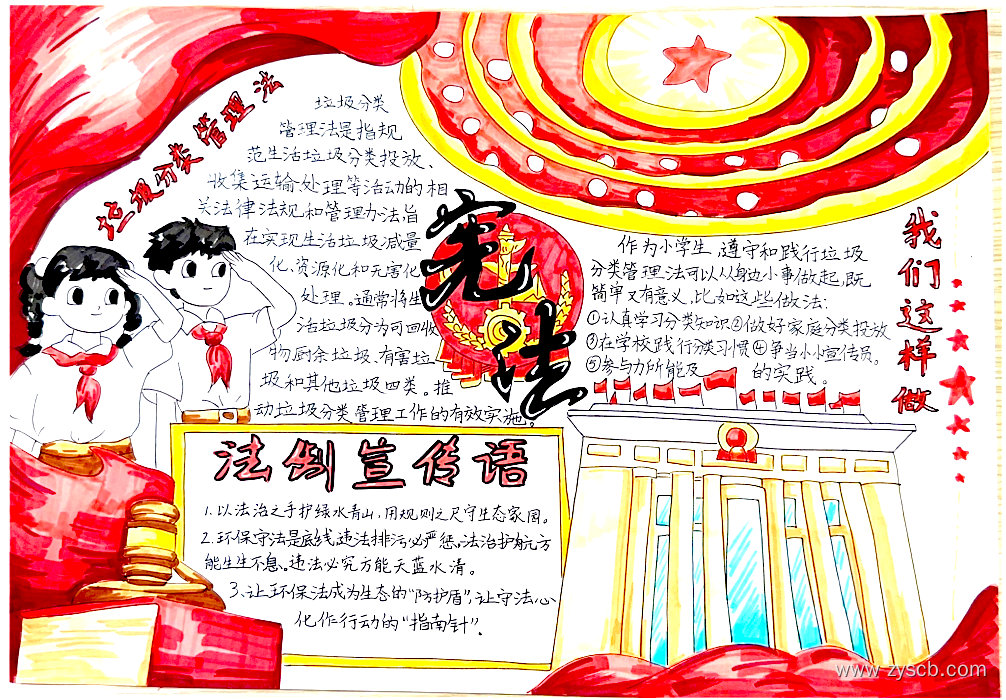 垃圾分类管理法
垃圾分类
管理法是指规
范生活垃圾分类投放、
收集运输处理等活动的相
关法律法规和管理办法旨
在实现生活垃圾减量
化、资源化和无害化
处理。通常将生
活垃圾分为可回收
物厨余垃圾、有害垃
圾和其他垃圾四类。推
动垃圾分类管理工作的有效实施。
宪法
我们这样做
作为小学生，遵守和践行垃圾
分类管理法可以从身边小事做起，既
简单又有意义，比如这些做法：
①认真学习分类知识②做好家庭分类投放
③在学校践行分类习惯④争当小小宣传员。
⑤参与力所能及 的实践。
法例宣传语
1.以法治之手护绿水青山，用规则之尺守生态家园。
2.环保守法是底线，违法排污必严惩，法治护航方
能生生不息、违法必究方能天蓝水清。
3.让环保法成为生态的“防护盾”，让守法心
化作行动的“指南针”.
www.zyscb.com